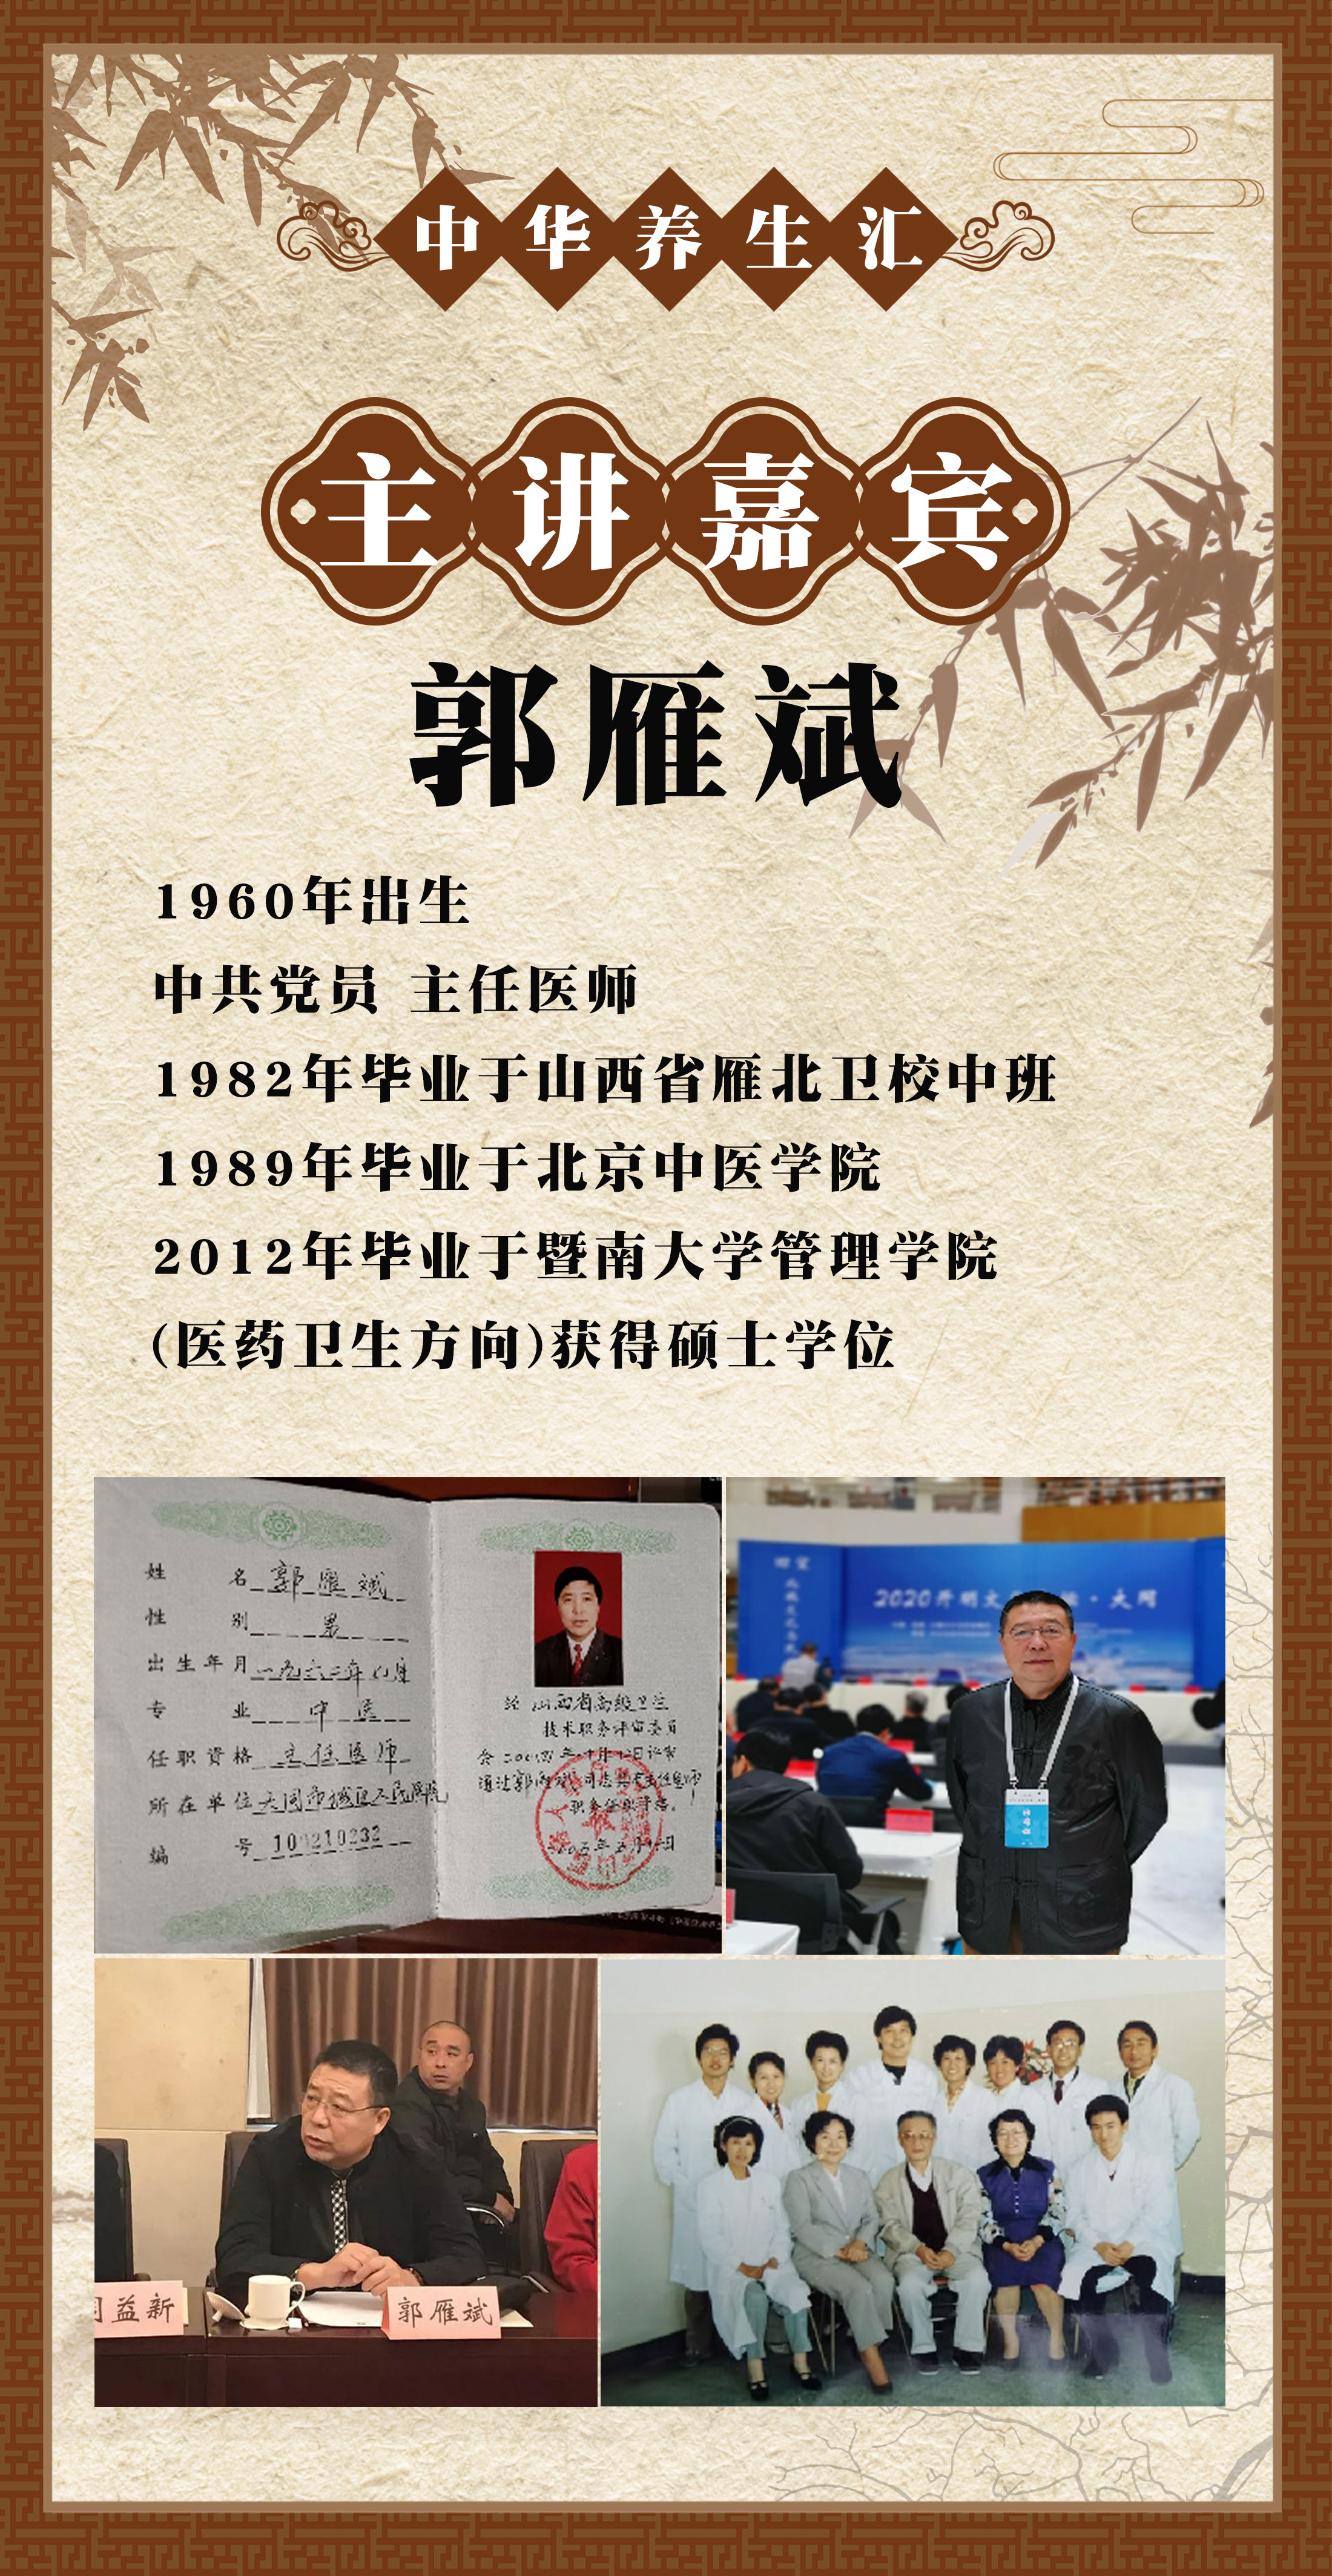 中华养生汇
主讲嘉宾
郭雁斌
1960年出生
中共党员 主任医师
1982年毕业于山西省雁北卫校中班
1989年毕业于北京中医学院
2012年毕业于暨南大学管理学院
(医药卫生方向)获得硕士学位
姓名 郭雁斌
性别 男
出生年月 一九六二年八月
专业 中医
任职资格 主任医师
所在单位 大同市城区人民医院
编号
经 山西省高级卫生
技术职务评审委员
通过郭雁斌同志具有主任医师
职务任职资格。
2020开明文 · 大同
益新
郭雁斌